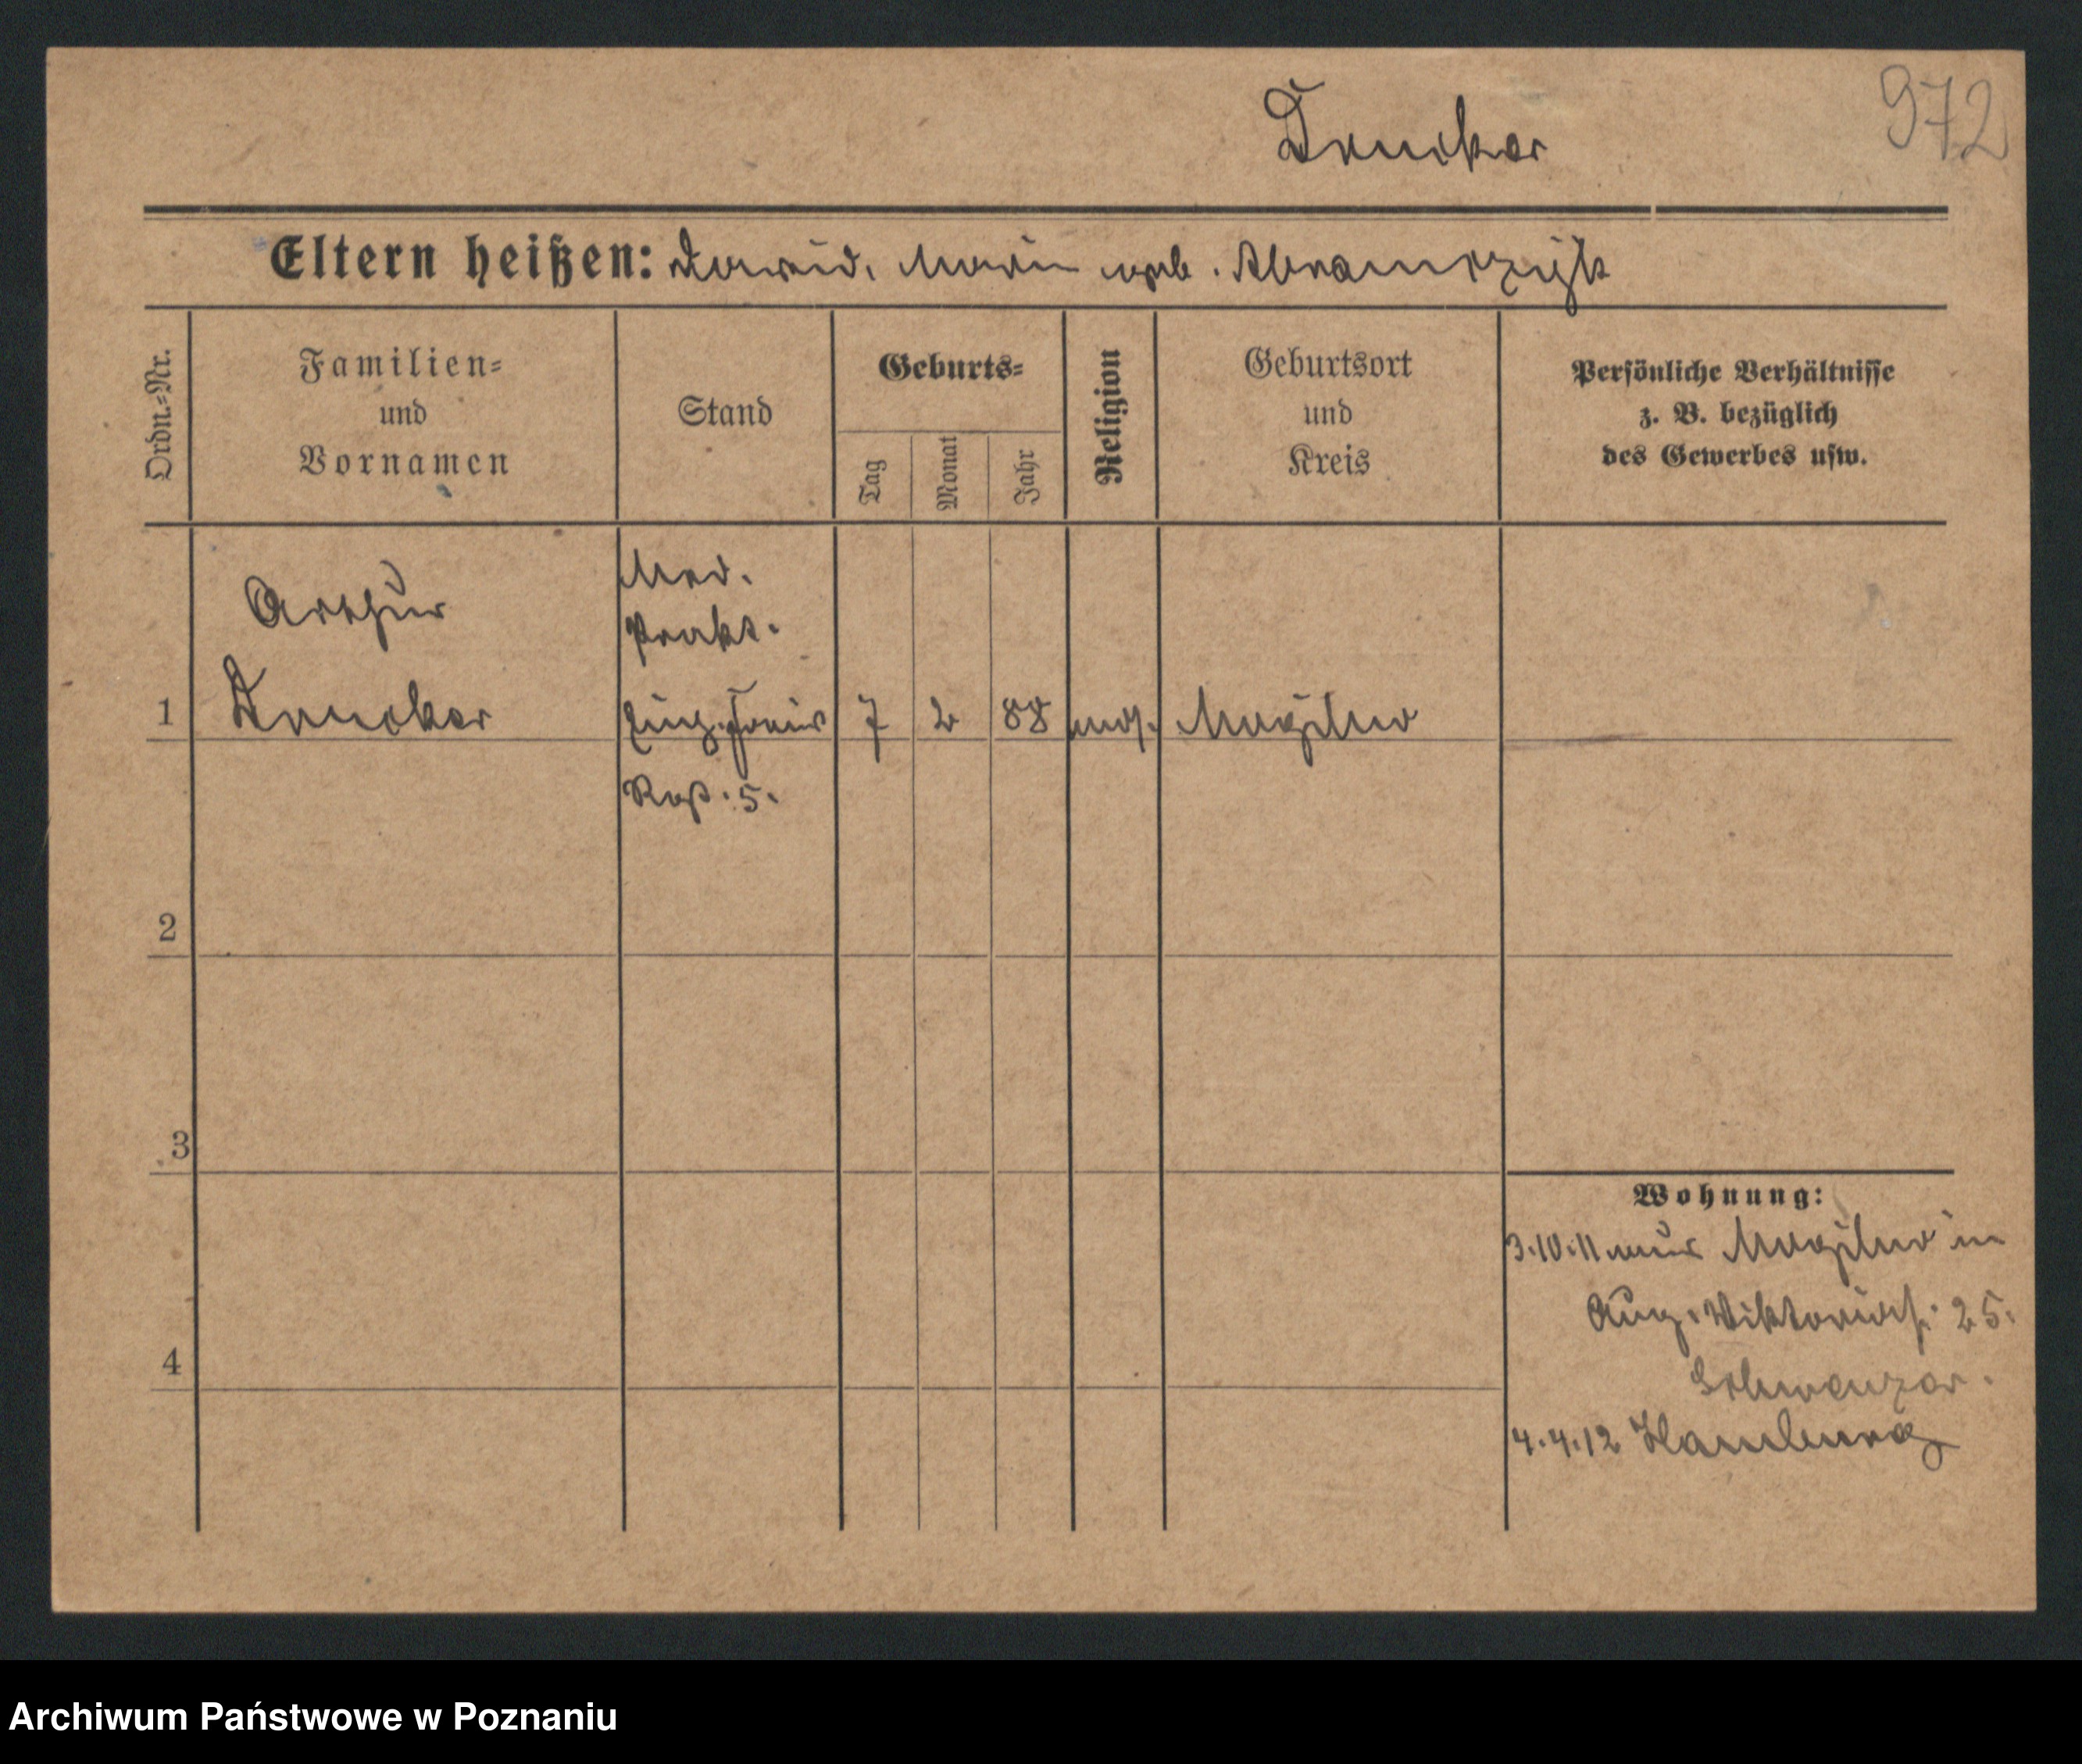 972
Drucker
Eltern heißen: Dawid, Marie geb. Abramczyk
Ordn.-Nr.
Familien-
und
Vornamen
Stand
Geburts-
Tag
Monat
Jahr
Religion
Geburtsort
und
Kreis
Persönliche Verhältnisse
z. B. bezüglich
des Gewerbes usw.
Arthur
Med.
Prakt.
1 Drucker 7 2 88 mos. Mogilno
5.
2
3
4
Wohnung:
3.10.11 aus Mogilno in
Aug. Viktoriastr. 25.
4.4.12 Hamburg
Archiwum Państwowe w Poznaniu